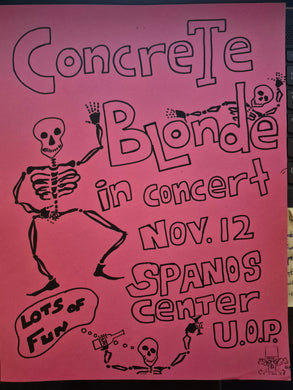 Concrete
Blonde
in concert
NOV. 12
SPANOS
center
U.O.P.
LOTS OF
FUN